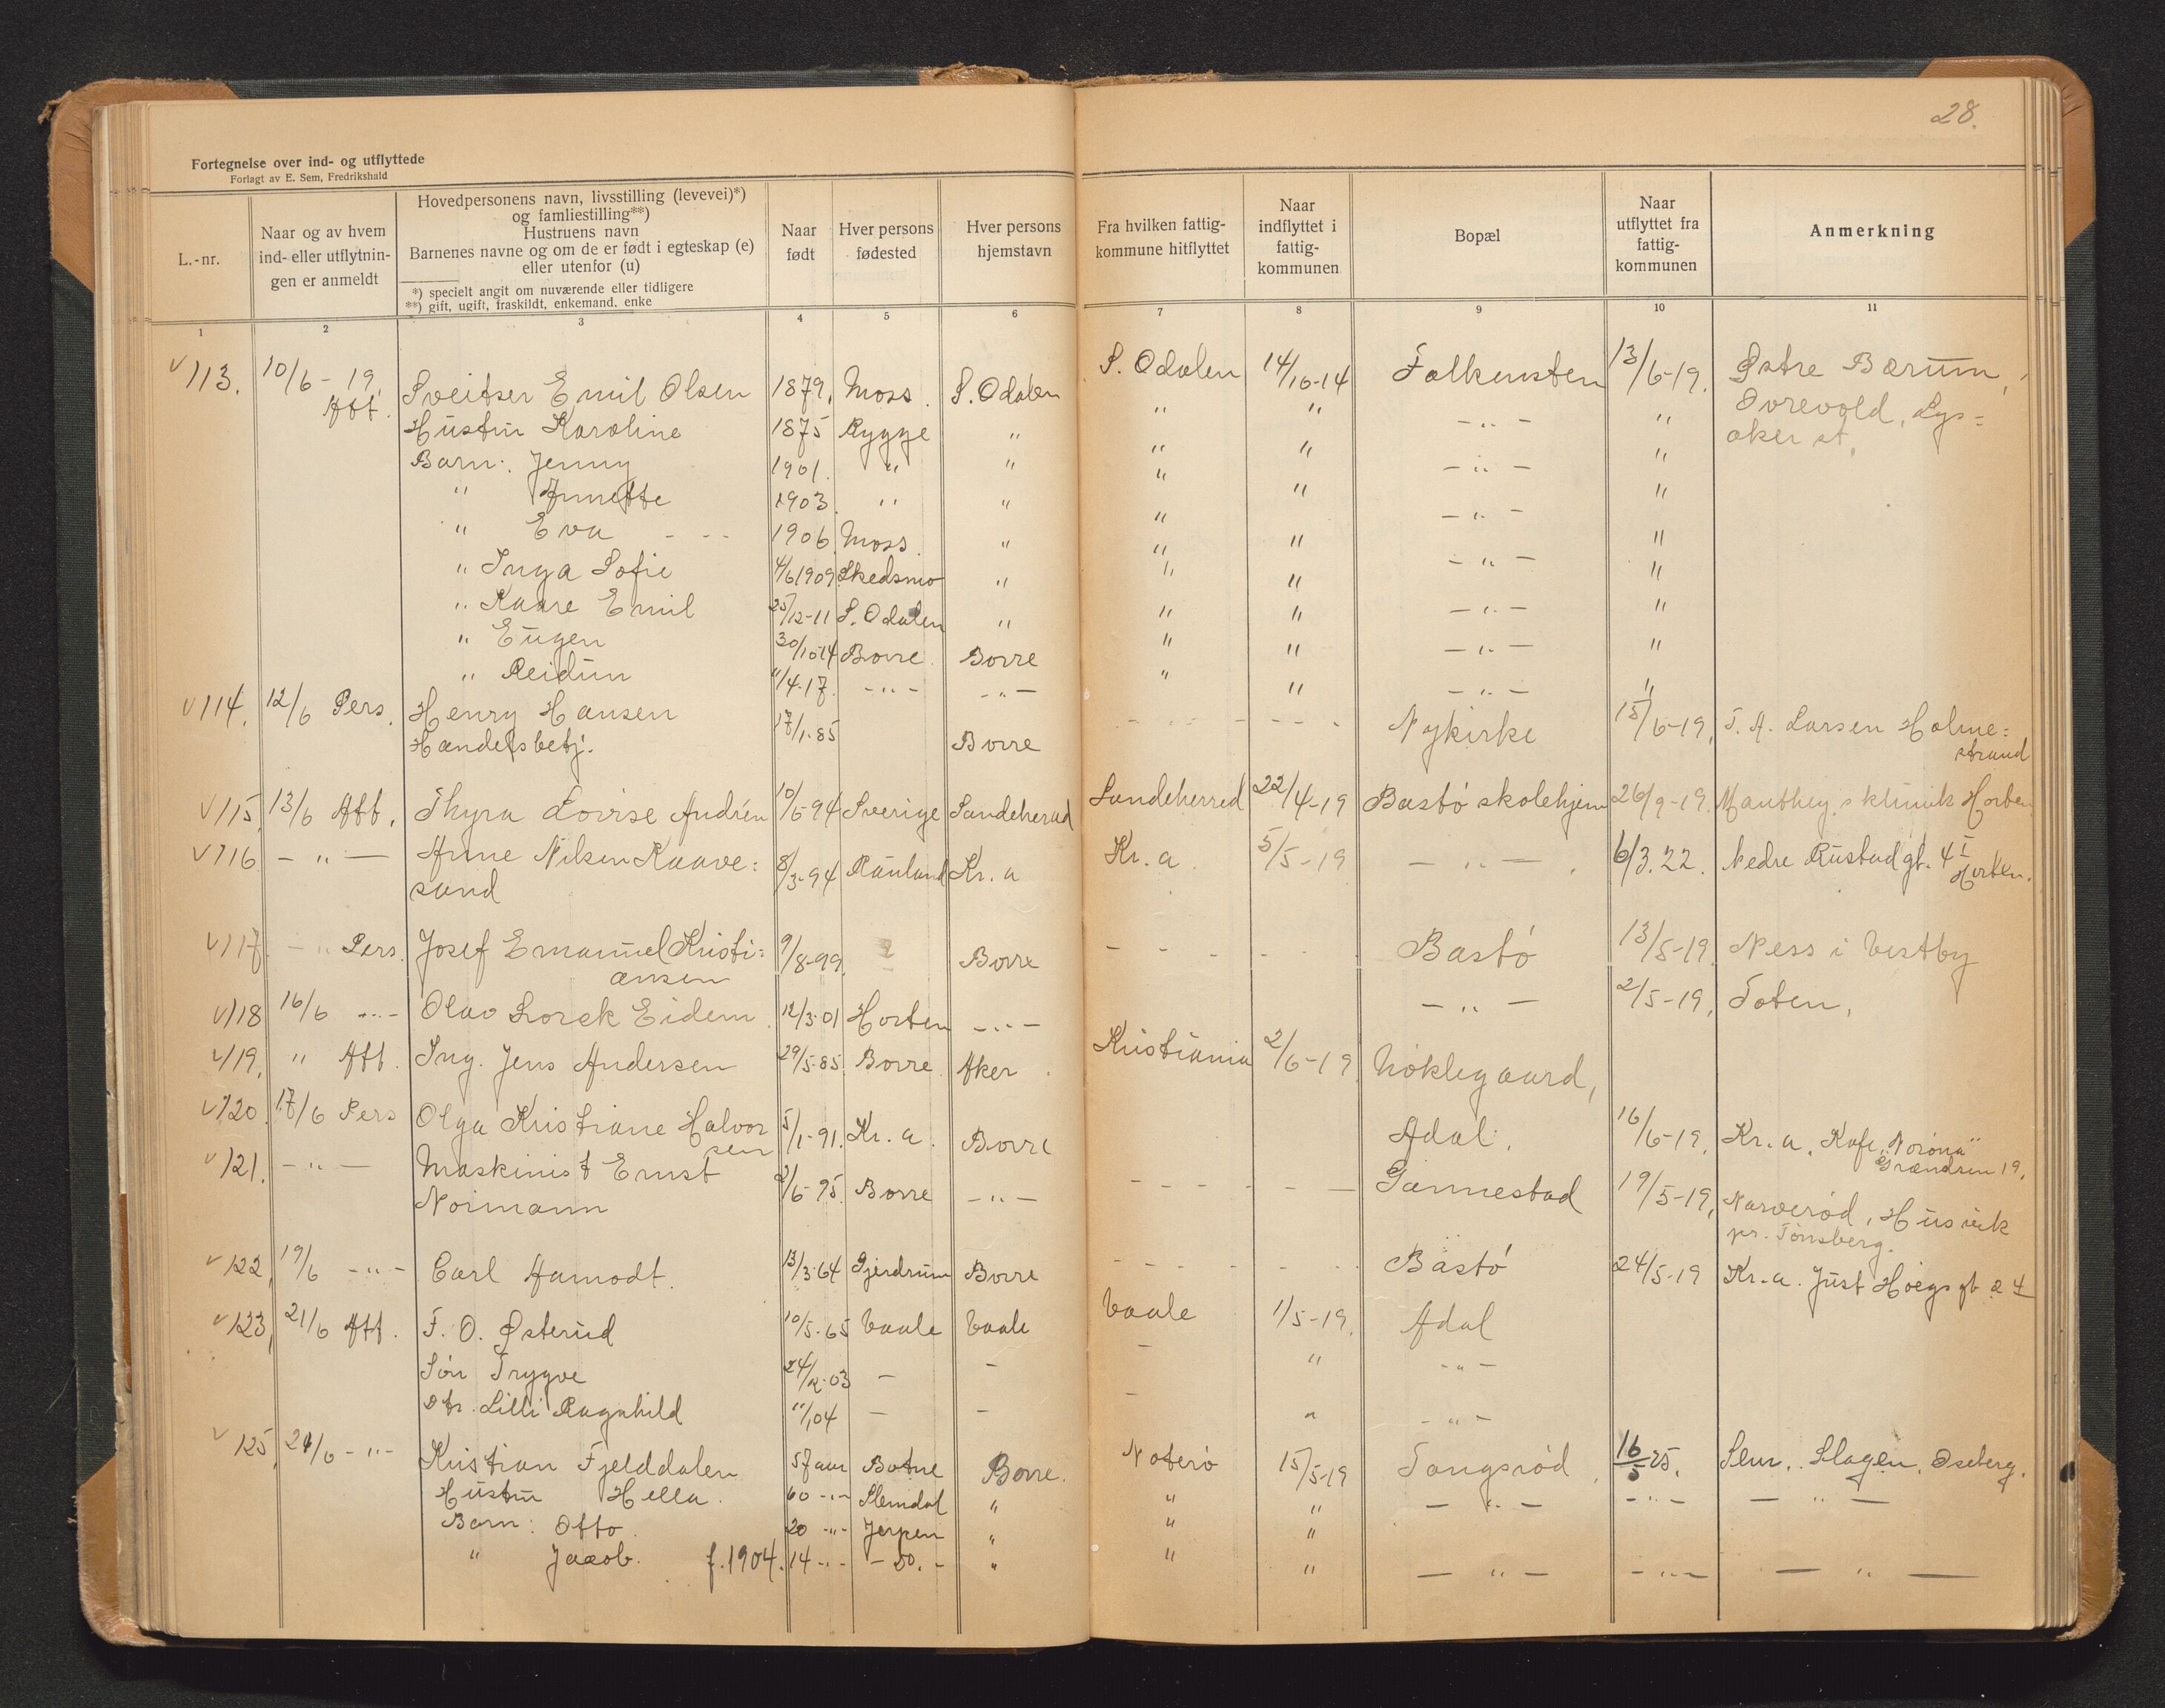 28.
Fortegnelse over ind- og utflyttede
Forlagt av E. Sem, Fredrikshald
L.-nr.
Naar og av hvem
ind- eller utflytnin-
gen er anmeldt
Hovedpersonens navn, livsstilling (levevei)*)
og famliestilling**)
Hustruens navn
Barnenes navne og om de er født i egteskap (e)
eller utenfor (u)
*) specielt angit om nuværende eller tidligere
**) gift, ugift, fraskildt, enkemand, enke
Naar
født
Hver persons
fødested
Hver persons
hjemstavn
Fra hvilken fattig-
kommune hitflyttet
Naar
indflyttet i
fattig-
kommunen
Bopæl
Naar
utflyttet fra
fattig-
kommunen
Anmerkning
1 2 3 4 5 6 7 8 9 10 11
√113. 10/6 - 19. Att. Sveitser Emil Olsen 1879. Moss. S. Odalen S. Odalen 14/10-14 Falkensten 13/6-19. Østre Bærum,
Hustru Karoline 1875 Rygge " " " - " - " Øvrevold, Lys=
Barn: Jenny 1901. " " " " - " - " aker st.
" Annette 1903 " " " " - " - "
" Eva 1906 Moss. " " " - " - "
" Inga Sofie 4/6 1909 Skedsmo " " " - " - "
" Kaare Emil 25/12-11 S. Odalen " " " - " - "
" Eugen 30/10-14 Borre Borre " " - " - "
" Reidun 11/4-17. - " - - " - " " - " - "
√114. 12/6 Pers. Henry Hansen 17/1-85 Nykirke 15/6-19. T. A. Larsen Holme=
Handelsbetj. Borre strand
√115. 13/6 Att. Thyra Lovise Andrén 10/6-94 Sverige Sandeherad Sandeherred 22/4-19 Bastö skolehjem 26/9-19. Manthey's klinik Horten
√116 - " - Anne Nilsen Raave= 8/3-94 Rauland Kr.a Kr.a. 5/5-19 - " - 6/3.22. Nedre Rustad gt. 4 I
sand Horten.
√117 - " Pers. Josef Emanuel Kristi= 9/8-99. Borre Bastö 13/5-19. Ness i Vestby
ansen
√118 16/6 - " - Olav Lorck Eidem 12/3-01 Horten - " - - " - 2/5-19. Toten.
√119. " Att. Ing. Jens Andersen 29/5-85. Borre Aker Kristiania 2/6-19. Nöklegaard,
√120. 17/6 Pers Olga Kristiane Halvor 5/1-91. Kr.a. Borre Adal. 16/6-19. Kr.a. Kafe "Noröna"
sen Grændsen 19.
√121. - " - Maskinist Ernst 2/6-95. Borre - " - Gannestad 19/5-19. Narveröd, Husvik
Normann pr. Tönsberg.
√122. 19/6 - " - Carl Aamodt. 13/3-64 Gjerdrum Borre Bastö 24/5-19 Kr.a. Just Höegs gt. 24
√123. 21/6 Att. F. O. Østerud 10/5-65 Vaale Vaale Vaale 1/5-19. Adal
Sön Trygve 24/12-03 - - - " - " -
Dtr. Lilli Ragnhild 11/1 04 - - - " - " -
√125. 24/6 - " - Kristian Fjelddalen 57 aar Botne Borre. Noterö 15/5-19 Tangsröd. 16/5 25. Sem. Slagen, Oseberg.
Hustru Hella. 60 - " - Slemdal " " " - " - - " - - " -
Barn: Otto. 20 - " - Jerpen " " "
" Jacob. f. 1904. 14 - " - - Do. - " " " - " - - " - - " -